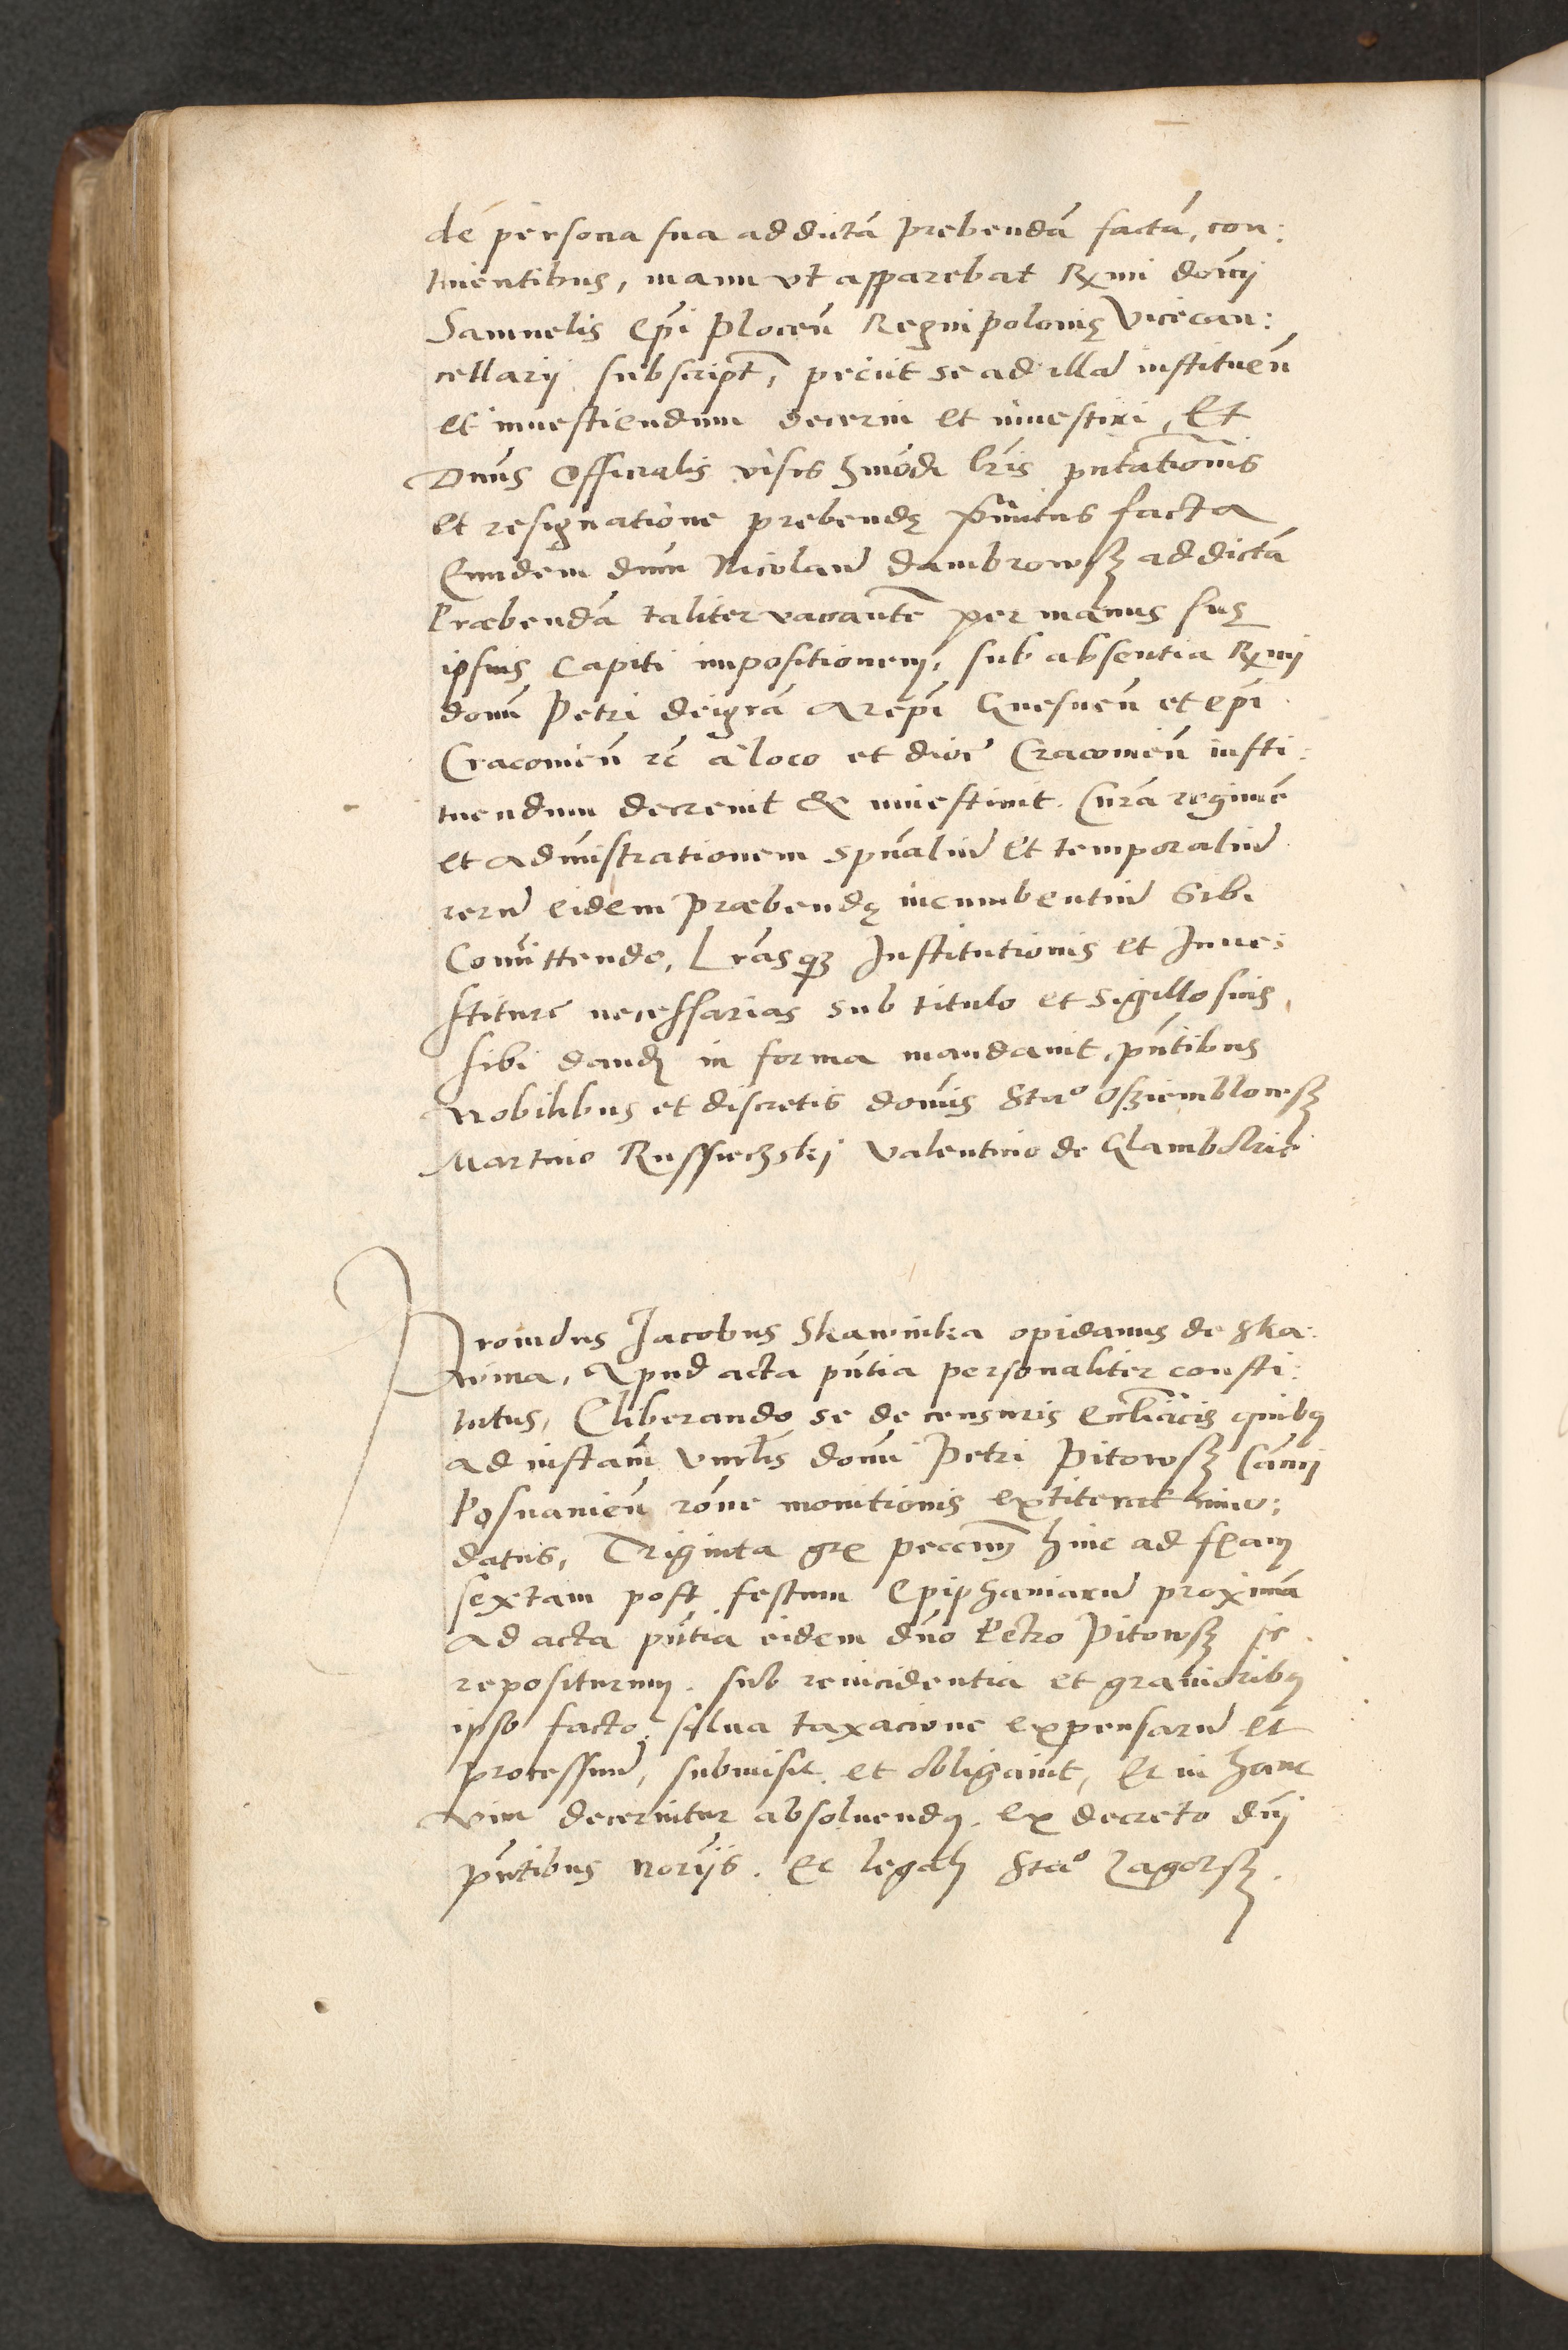 de persona sua ad dictã prebendã factã, con:
tinentibus, manu vt apparebat Rx̃mi domĩ
Samuelis Ep̃i Plocen̄ Regni Polonię Vicecan:
cellarij subscript̃, peciit se ad illã instituen̄
et inuestiendum decerni et inuestiri, Et
Dnus̃ Officialis visis hm̃õi lr̃is pn̄tationis
et resignatione prebendę p̃mittus facta
Eundem dn̄m Nicolaũ Dambrowsz̧ ad dictã
Præbendã taliter vacantẽ per manus suę
ipsius Capiti impositionem, sub absentia Rx̃mi
domĩ Petri dei grã Arep̃i Gnesnen̄ et Ep̃i
Cracouien̄ rc̃ a loco et dioc̃ Cracouien̄ insti:
tuendum decreuit & inuestiuit. Curã regimẽ
et admĩstrationem spũaliũ et temporaliũ
rerũ eidem præbendę incumbentiũ Sibi
Com̃ittendo, Lr̃asqꝫ Institutionis et Inue:
stiturę necessarias sub titulo et sigillo suis,
sibi dand̃ in forma mandauit, pn̄tibus
Nobilibus et discretis domĩs Sta° Osziemblowsz̧
Martino Russieczskÿ Valentino de Glambokie

Prouidus Jacobus Skawinka opidanus de Ska:
wina, Apud acta pn̄tia personaliter consti:
tutus, Eliberando se de censuris Eccl̃iãcis quibꝰ
ad instãm Vnr̃lis domĩ Petri Pitowsz̧ Cãnĩ
Posnanien̄ rõne monitionis extiterat inno:
datus, Triginta grꝭ peccuñ hinc ad fęam
sextam post festum Epiphaniarũ proximã
ad acta pn̄tia eidem dño Petro Pitowsz̧ se
repositurum, sub reincidentia et grauioribꝰ
ipso facto, salua taxacione expensarũ et
processuũ, submisit et obligauit, Et in hanc
vim decernitur absoluendꝰ. Ex decreto dñi
pn̄tibus norijs. Et legal̃ Sta° Zagorsz̧.